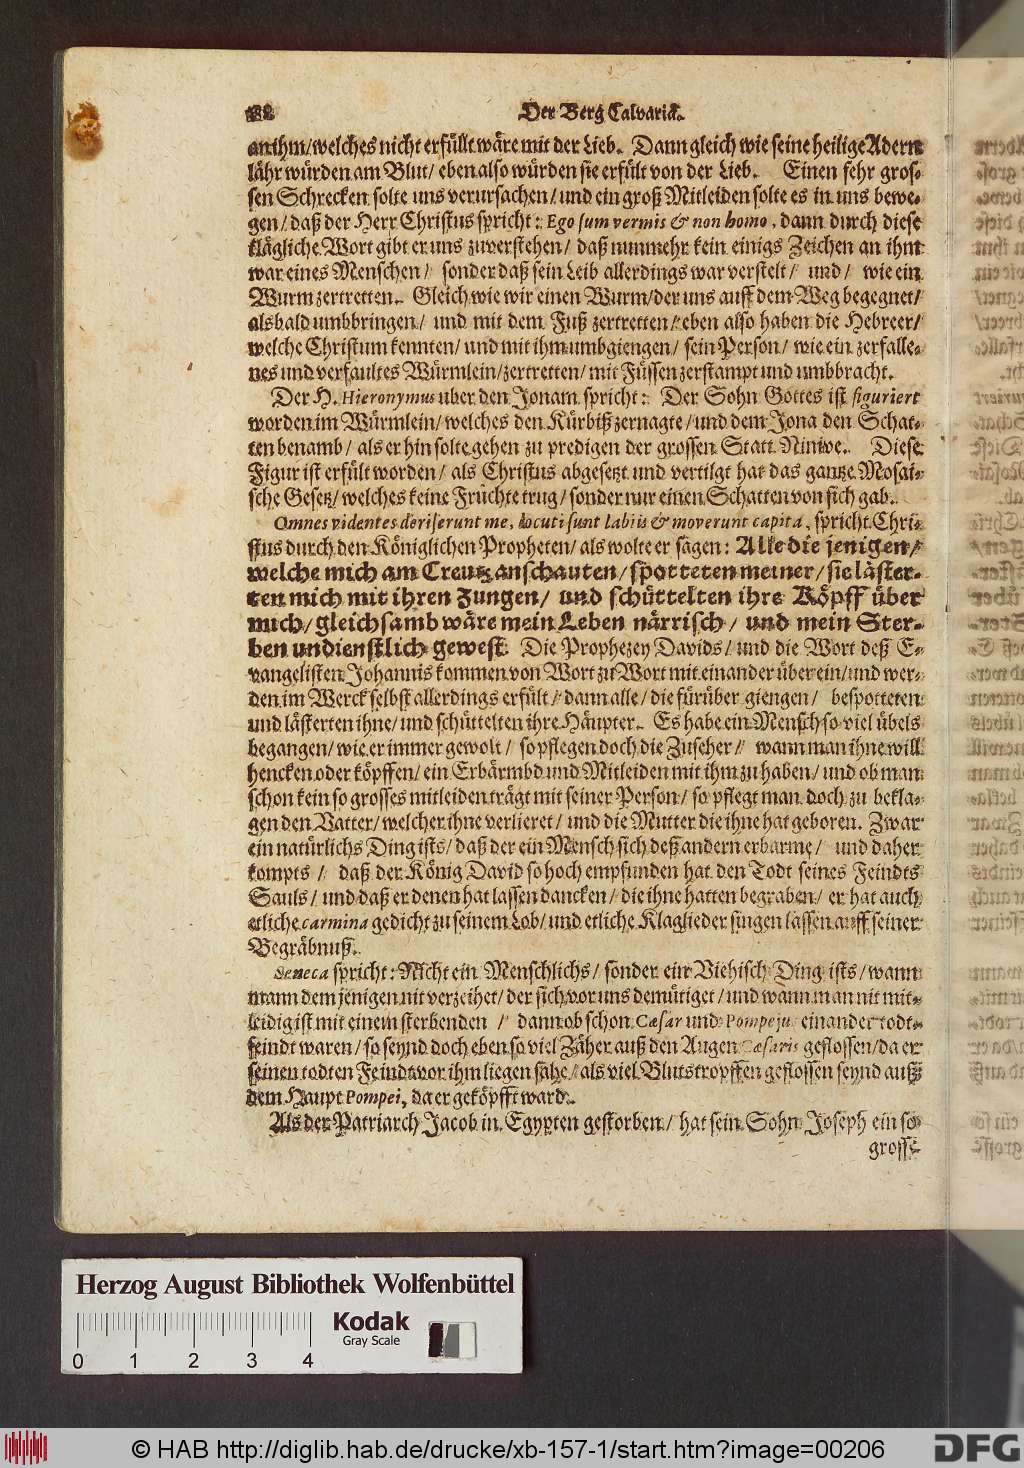 182 Der Berg Calvariæ.
an ihm/ welches nicht erfüllt wäre mit der Lieb. Dann gleich wie seine heilige Adern
lähr würden am Blut/ eben also würden sie erfült von der Lieb. Einen sehr gros-
sen Schrecken solte uns verursachen/ und ein groß Mitleiden solte es in uns bewe-
gen/ daß der Herr Christus spricht: Ego sum vermis & non homo, dann durch diese
klägliche Wort gibt er uns zuverstehen/ daß nunmehr kein einigs Zeichen an ihm
war eines Menschen/ sonder daß sein Leib allerdings war verstelt/ und/ wie ein
Wurm zertretten. Gleich wie wir einen Wurm/ der uns auff dem Weg begegnet/
alsbald umbbringen/ und mit dem Fuß zertretten/ eben also haben die Hebreer/
welche Christum kennten/ und mit ihm umbgiengen/ sein Person/ wie ein zerfalle-
nes und verfaultes Würmlein/ zertretten/ mit Füssen zerstampt und umbbracht.
Der H. Hieronymus uber den Jonam spricht: Der Sohn Gottes ist figuriert
worden im Würmlein/ welches den Kürbiß zernagte/ und dem Jona den Schat-
ten benamb/ als er hin solte gehen zu predigen der grossen Statt Ninive. Diese
Figur ist erfült worden/ als Christus abgesetzt und vertilgt hat das gantze Mosai-
sche Gesetz/ welches keine Früchte trug/ sonder nur einen Schatten von sich gab.
Omnes videntes deriserunt me, locuti sunt labiis & moverunt capita, spricht Chri-
stus durch den Königlichen Propheten/ als wolte er sagen: Alle die jenigen/
welche mich am Creutz anschauten/ spotteten meiner/ sie läster-
ten mich mit ihren Zungen/ und schüttelten ihre Köpff über
mich/ gleichsamb wäre mein Leben närrisch/ und mein Ster-
ben undienstlich gewest. Die Prophezey Davids/ und die Wort deß E-
vangelisten Johannis kommen von Wort zu Wort mit einander über ein/ und wer-
den im Werck selbst allerdings erfült/ dann alle/ die fürüber giengen/ bespotteten
und lästerten ihne/ und schüttelten ihre Häupter. Es habe ein Mensch so viel übels
begangen/ wie er immer gewolt/ so pflegen doch die Zuseher/ wann man ihne will
hencken oder köpffen/ ein Erbärmbd und Mitleiden mit ihm zu haben/ und ob man
schon kein so grosses mitleiden trägt mit seiner Person/ so pflegt man doch zu bekla-
gen den Vatter/ welcher ihne verlieret/ und die Mutter die ihne hat geboren. Zwar
ein natürlichs Ding ists/ daß der ein Mensch sich deß andern erbarme/ und daher
kompts/ daß der König David so hoch empfunden hat den Todt seines Feindts
Sauls/ und daß er denen hat lassen dancken/ die ihne hatten begraben/ er hat auch
etliche carmina gedicht zu seinem Lob/ und etliche Klaglieder singen lassen auff seiner
Begräbnuß.
Seneca spricht: Nicht ein Menschlichs/ sonder ein Viehisch Ding ists/ wann
mann dem jenigen nit verzeihet/ der sich vor uns demütiget/ und wann man nit mit-
leidig ist mit einem sterbenden/ dann ob schon Cæsar und Pompeju einander todt-
feindt waren/ so seynd doch eben so viel Zäher auß den Augen Cæsaris geflossen/ da er
seinen todten Feindt vor ihm liegen sahe/ als viel Blutstropffen geflossen seynd auß
dem Haupt Pompei, da er geköpfft ward.
Als der Patriarch Jacob in Egypten gestorben/ hat sein Sohn Joseph ein so
grosse
Herzog August Bibliothek Wolfenbüttel
Kodak
Gray Scale
0 1 2 3 4
© HAB http://diglib.hab.de/drucke/xb-157-1/start.htm?image=00206
DFG